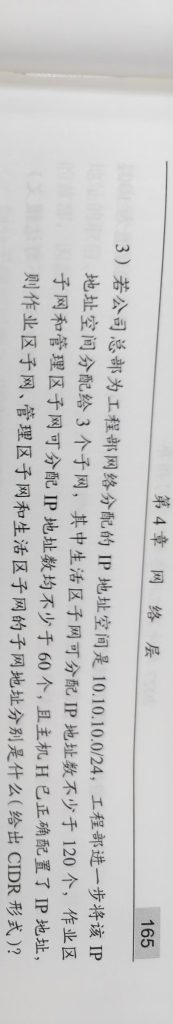 第 4 章 网 络 层 165
3）若公司总部为工程部网络分配的 IP 地址空间是 10.10.10.0/24，工程部进一步将该 IP
地址空间分配给 3 个子网，其中生活区子网可分配 IP 地址数不少于 120 个，作业区
子网和管理区子网可分配 IP 地址数均不少于 60 个，且主机 H 已正确配置了 IP 地址，
则作业区子网、管理区子网和生活区子网的子网地址分别是什么（给出 CIDR 形式）？